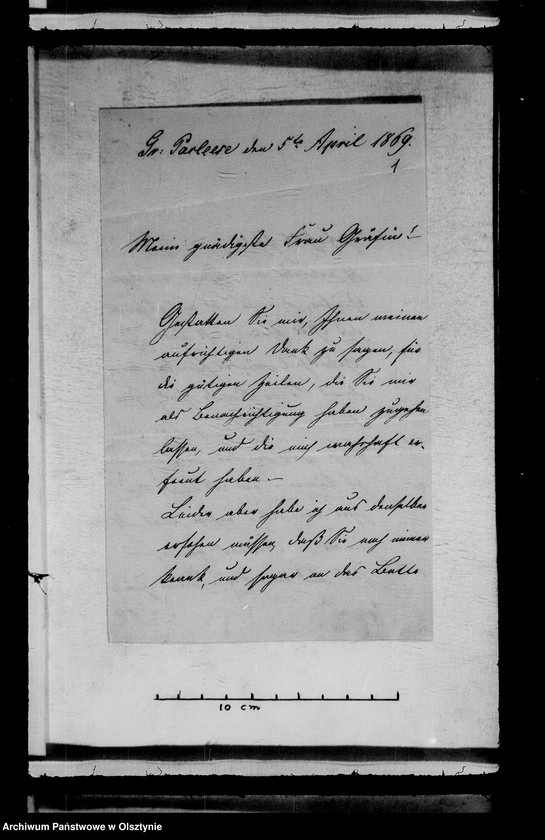 Gr: Parleese den 5te April 1869.
1
Meine gnädigste Frau Gräfin!
Gestatten Sie mir, Ihnen meinen
aufrichtigen Dank zu sagen, für
die gütigen Zeilen, die Sie mir
als Benachrichtigung haben zugehen
lassen, und die mich wahrhaft er-
freut haben.-
Leider aber habe ich aus denselben
ersehen müssen, daß Sie noch immer
krank, und sogar an das Bette
10 cm
Archiwum Państwowe w Olsztynie